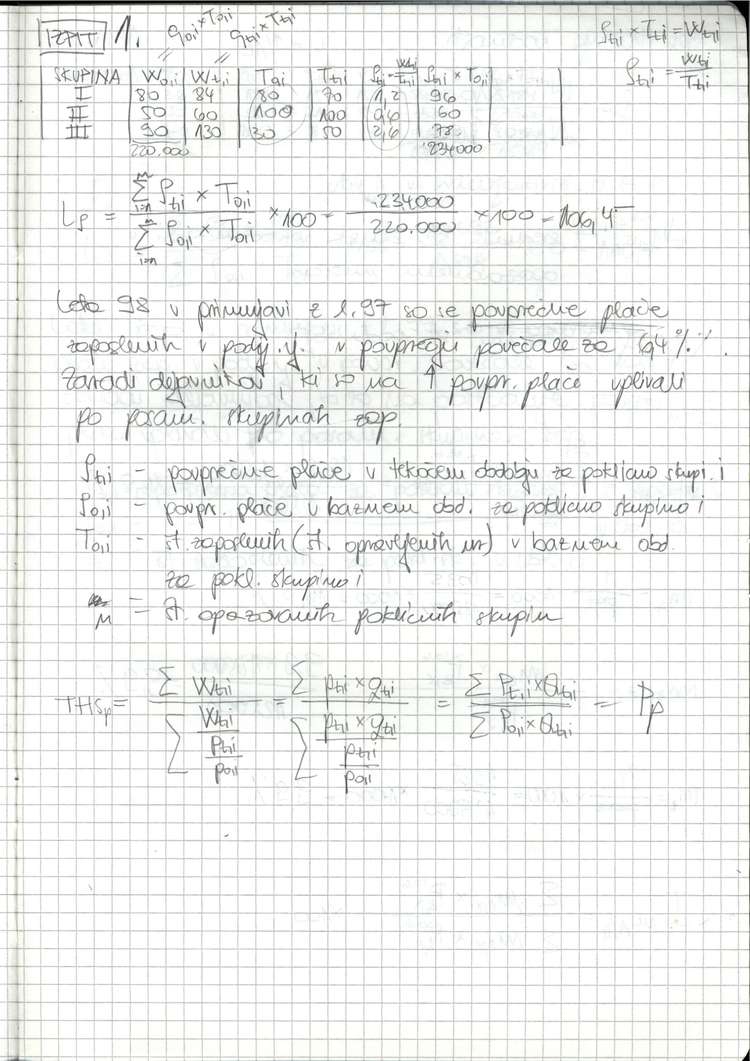 IZPIT 1. q0,i × T0,i qt,i × Tt,i
ρt,i × Tt,i = Wt,i
ρt,i = Wt,i / Tt,i
SKUPINA | W0,i | Wt,i | T0,i | Tt,i | ρt,i = Wt,i / Tt,i | ρt,i × T0,i
I | 80 | 84 | 80 | 70 | 1,2 | 96
II | 50 | 60 | 100 | 100 | 0,6 | 60
III | 90 | 130 | 30 | 50 | 2,6 | 78
220.000 234000
Lρ = Σ ρt,i × T0,i / Σ ρ0,i × T0,i × 100 = 234.000 / 220.000 × 100 = 106,4
Leto 98 v primerjavi z l. 97 so se povprečne plače
zaposlenih v podj. y. v povprečju povečale za 6,4 %.
Zaradi dejavnikov, ki so na ↑ povpr. plače vplivali
po posam. skupinah zap.
ρt,i - povprečne plače v tekočem obdobju za poklicno skupi. i
ρ0,i - povpr. plače v baznem obd. za poklicno skupino i
T0,i - št. zaposlenih (št. opravljenih ur) v baznem obd.
za pokl. skupino i
m = št. opazovanih poklicnih skupin
THSp = Σ Wt,i / Σ (Wt,i / (pt,i / p0,i)) = Σ pt,i × qt,i / Σ (pt,i × qt,i / (pt,i / p0,i)) = Σ Pt,i × Qt,i / Σ P0,i × Qt,i = Pp